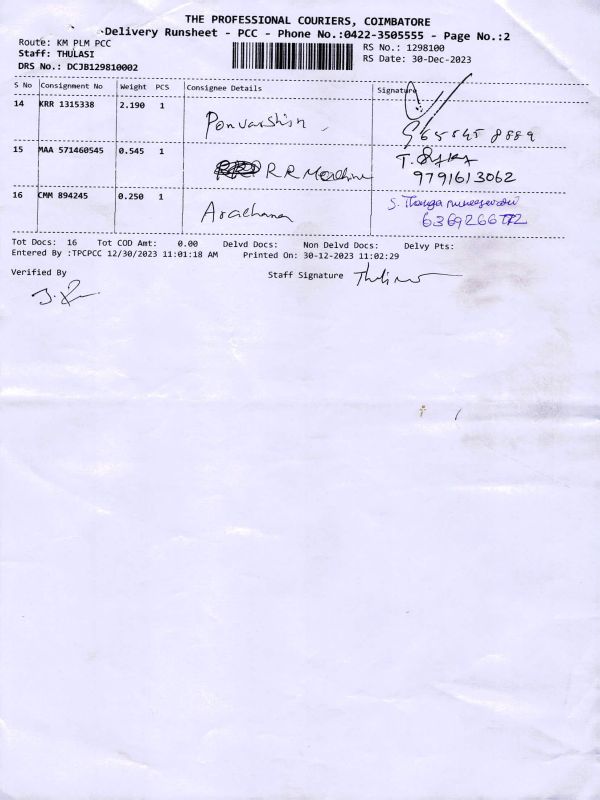 THE PROFESSIONAL COURIERS, COIMBATORE
Delivery Runsheet - PCC - Phone No.:0422-3505555 - Page No.:2
Route: KM PLM PCC
Staff: THULASI
DRS No.: DCJB129810002
RS No.: 1298100
RS Date: 30-Dec-2023
S No Consignment No Weight PCS Consignee Details Signature
14 KRR 1315338 2.190 1 Ponvarshini
15 MAA 571460545 0.545 1 R R Machine
9791613062
16 CMM 894245 0.250 1 Arachana
S. Thanga
Tot Docs: 16 Tot COD Amt: 0.00 Delvd Docs: Non Delvd Docs: Delvy Pts:
Entered By :TPCPCC 12/30/2023 11:01:18 AM Printed On: 30-12-2023 11:02:29
Verified By Staff Signature